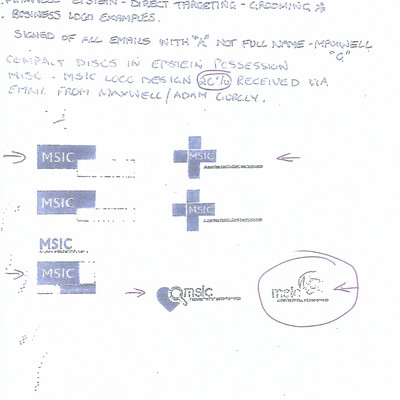 EPSTEIN - DIRECT TARGETING - GROOMING &
BUSINESS LOGO EXAMPLES.
SIGNED OF ALL EMAILS WITH "A" NOT FULL NAME - MAXWELL
"G"
COMPACT DISCS IN EPSTEIN POSSESSION
MSIC - MSIC LOGO DESIGN RECEIVED VIA
EMAIL FROM MAXWELL/ADAM
MSIC
MSIC
MSIC
MSIC
MSIC
MSIC
msic
msic